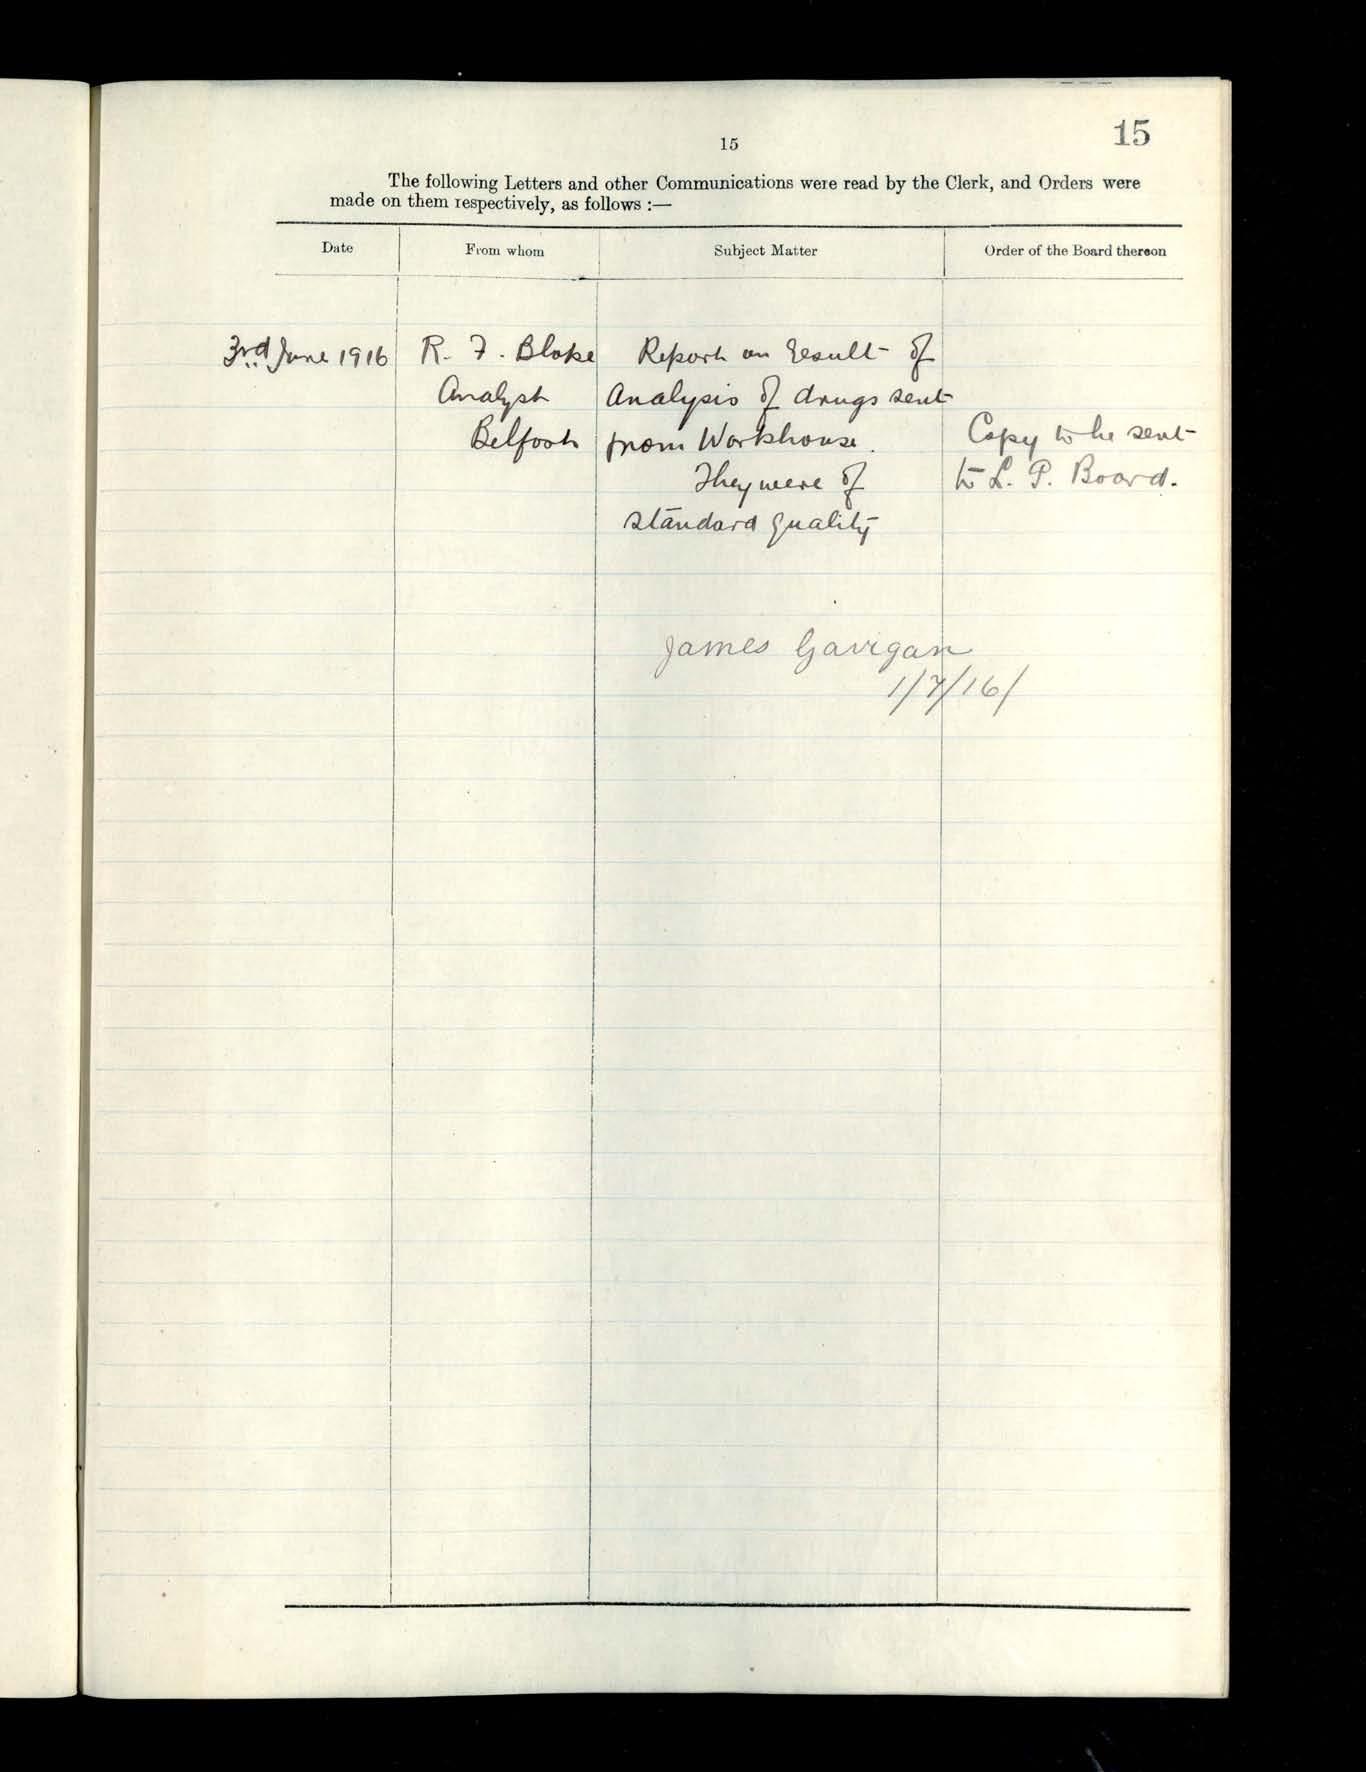 15
15
The following Letters and other Communications were read by the Clerk, and Orders were
made on them respectively, as follows :—
Date From whom Subject Matter Order of the Board thereon
3rd June 1916 R. F. Blake Report on result of
Analyst Analysis of drugs sent
Belfast from Workhouse. Copy to be sent
They were of to L. G. Board.
standard quality
James Gavigan
1/7/16/